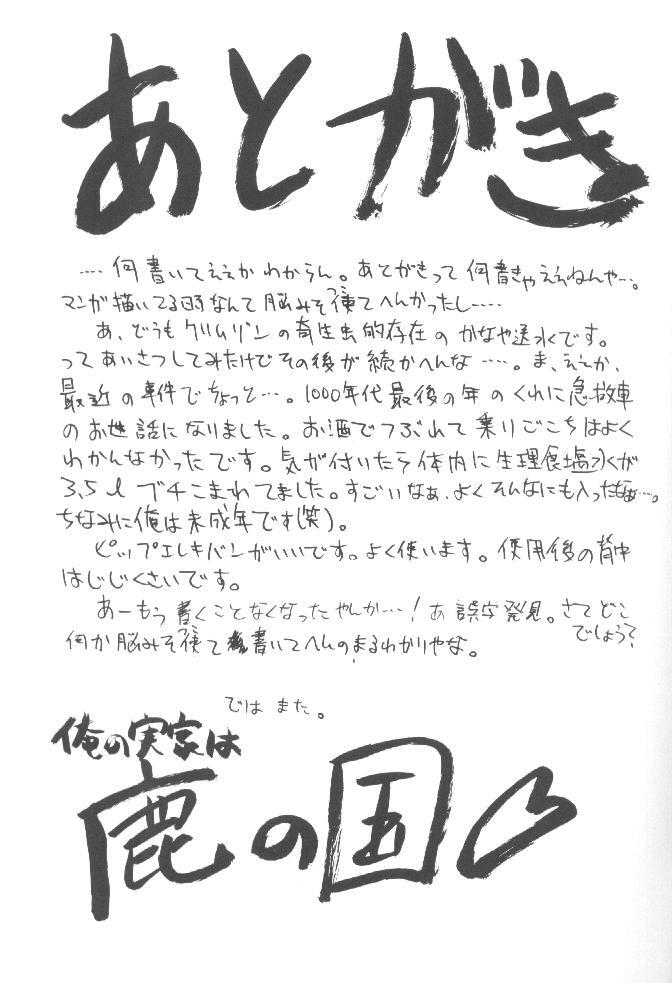 あとがき
…. 何書いてええか わからん。あとがきって 何書きゃええねんや…。
マンガ描いてる時なんて 脳みそ使てへんかったし….
あ、どうも クリムゾンの寄生虫的存在の かなや送水です。
って あいさつしてみたけど その後が 続かへんな ….。ま、ええか、
最近の事件で ちょっと…。1000年代最後の年の くれに 急救車
のお世話になりました。お酒でつぶれて 乗りごこちはよく
わかんなかったです。気が付いたら 体内に 生理食塩水が
3.5ℓ ブチこまれてました。すごいなぁ、よく そんなにも入ったなぁ…。
ちなみに俺は 未成年です(笑)。
ピップエレキバンがいいです。よく使います。使用後の背中
はじじくさいです。
あーもう 書くことなくなったやんか…! あ 誤字発見。さて どこ
でしょう?
何か脳みそ使て 書いてへんの まるわかりやな。
では また。
俺の実家は
鹿の国